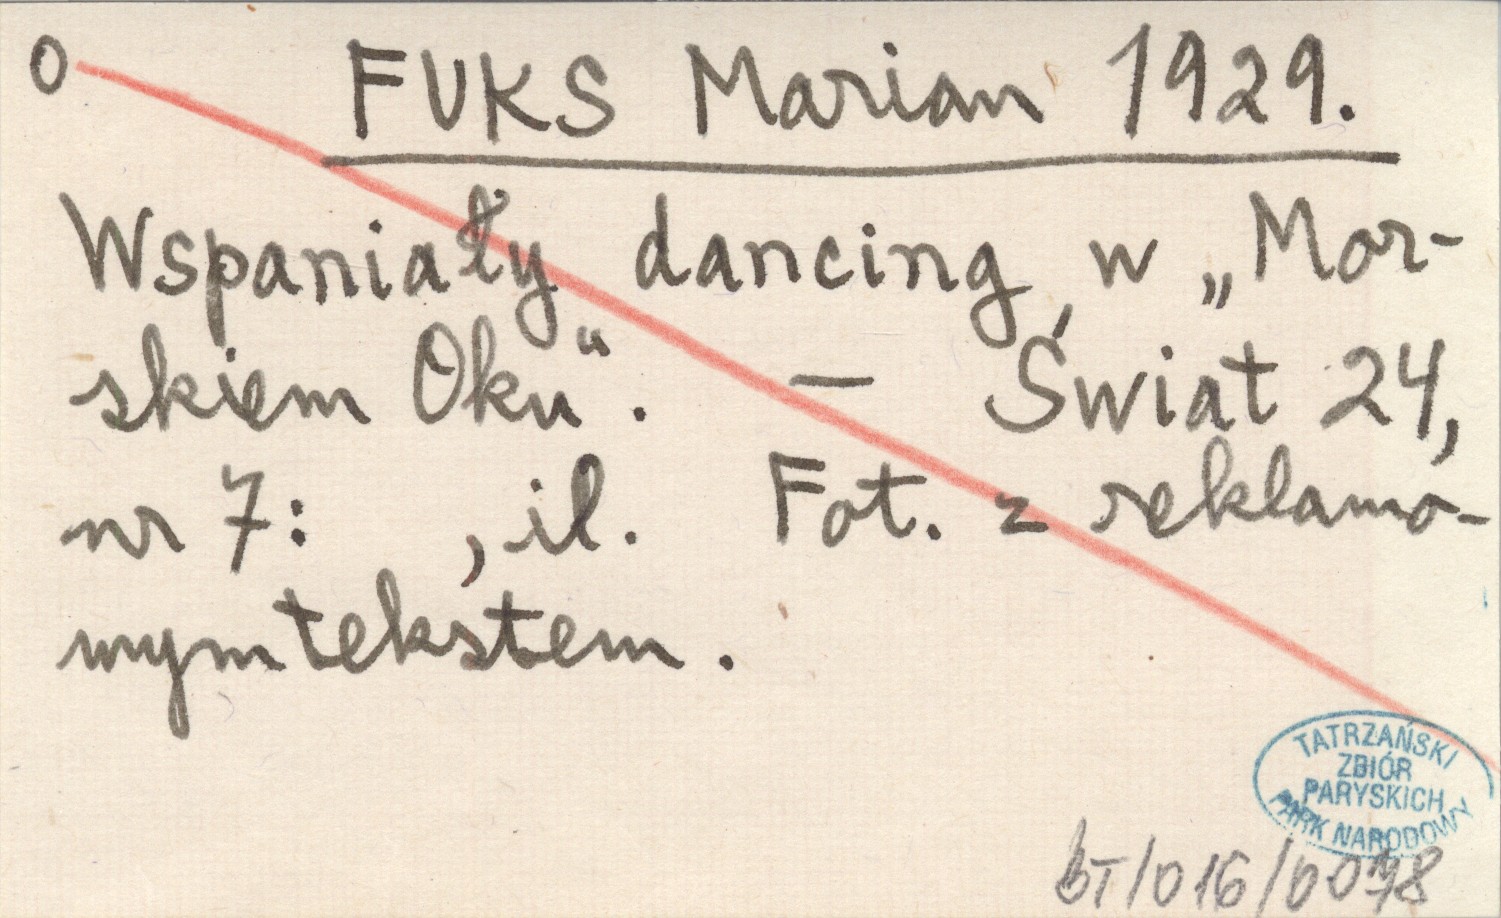 0 FUKS Marian 1929.
Wspaniały dancing w „Mor-
skiem Oku“. — Świat 24,
nr 7: , il. Fot. z reklamo-
wym tekstem.
TATRZAŃSKI
ZBIÓR
PARYSKICH
PARK NARODOWY
bT/016/0078